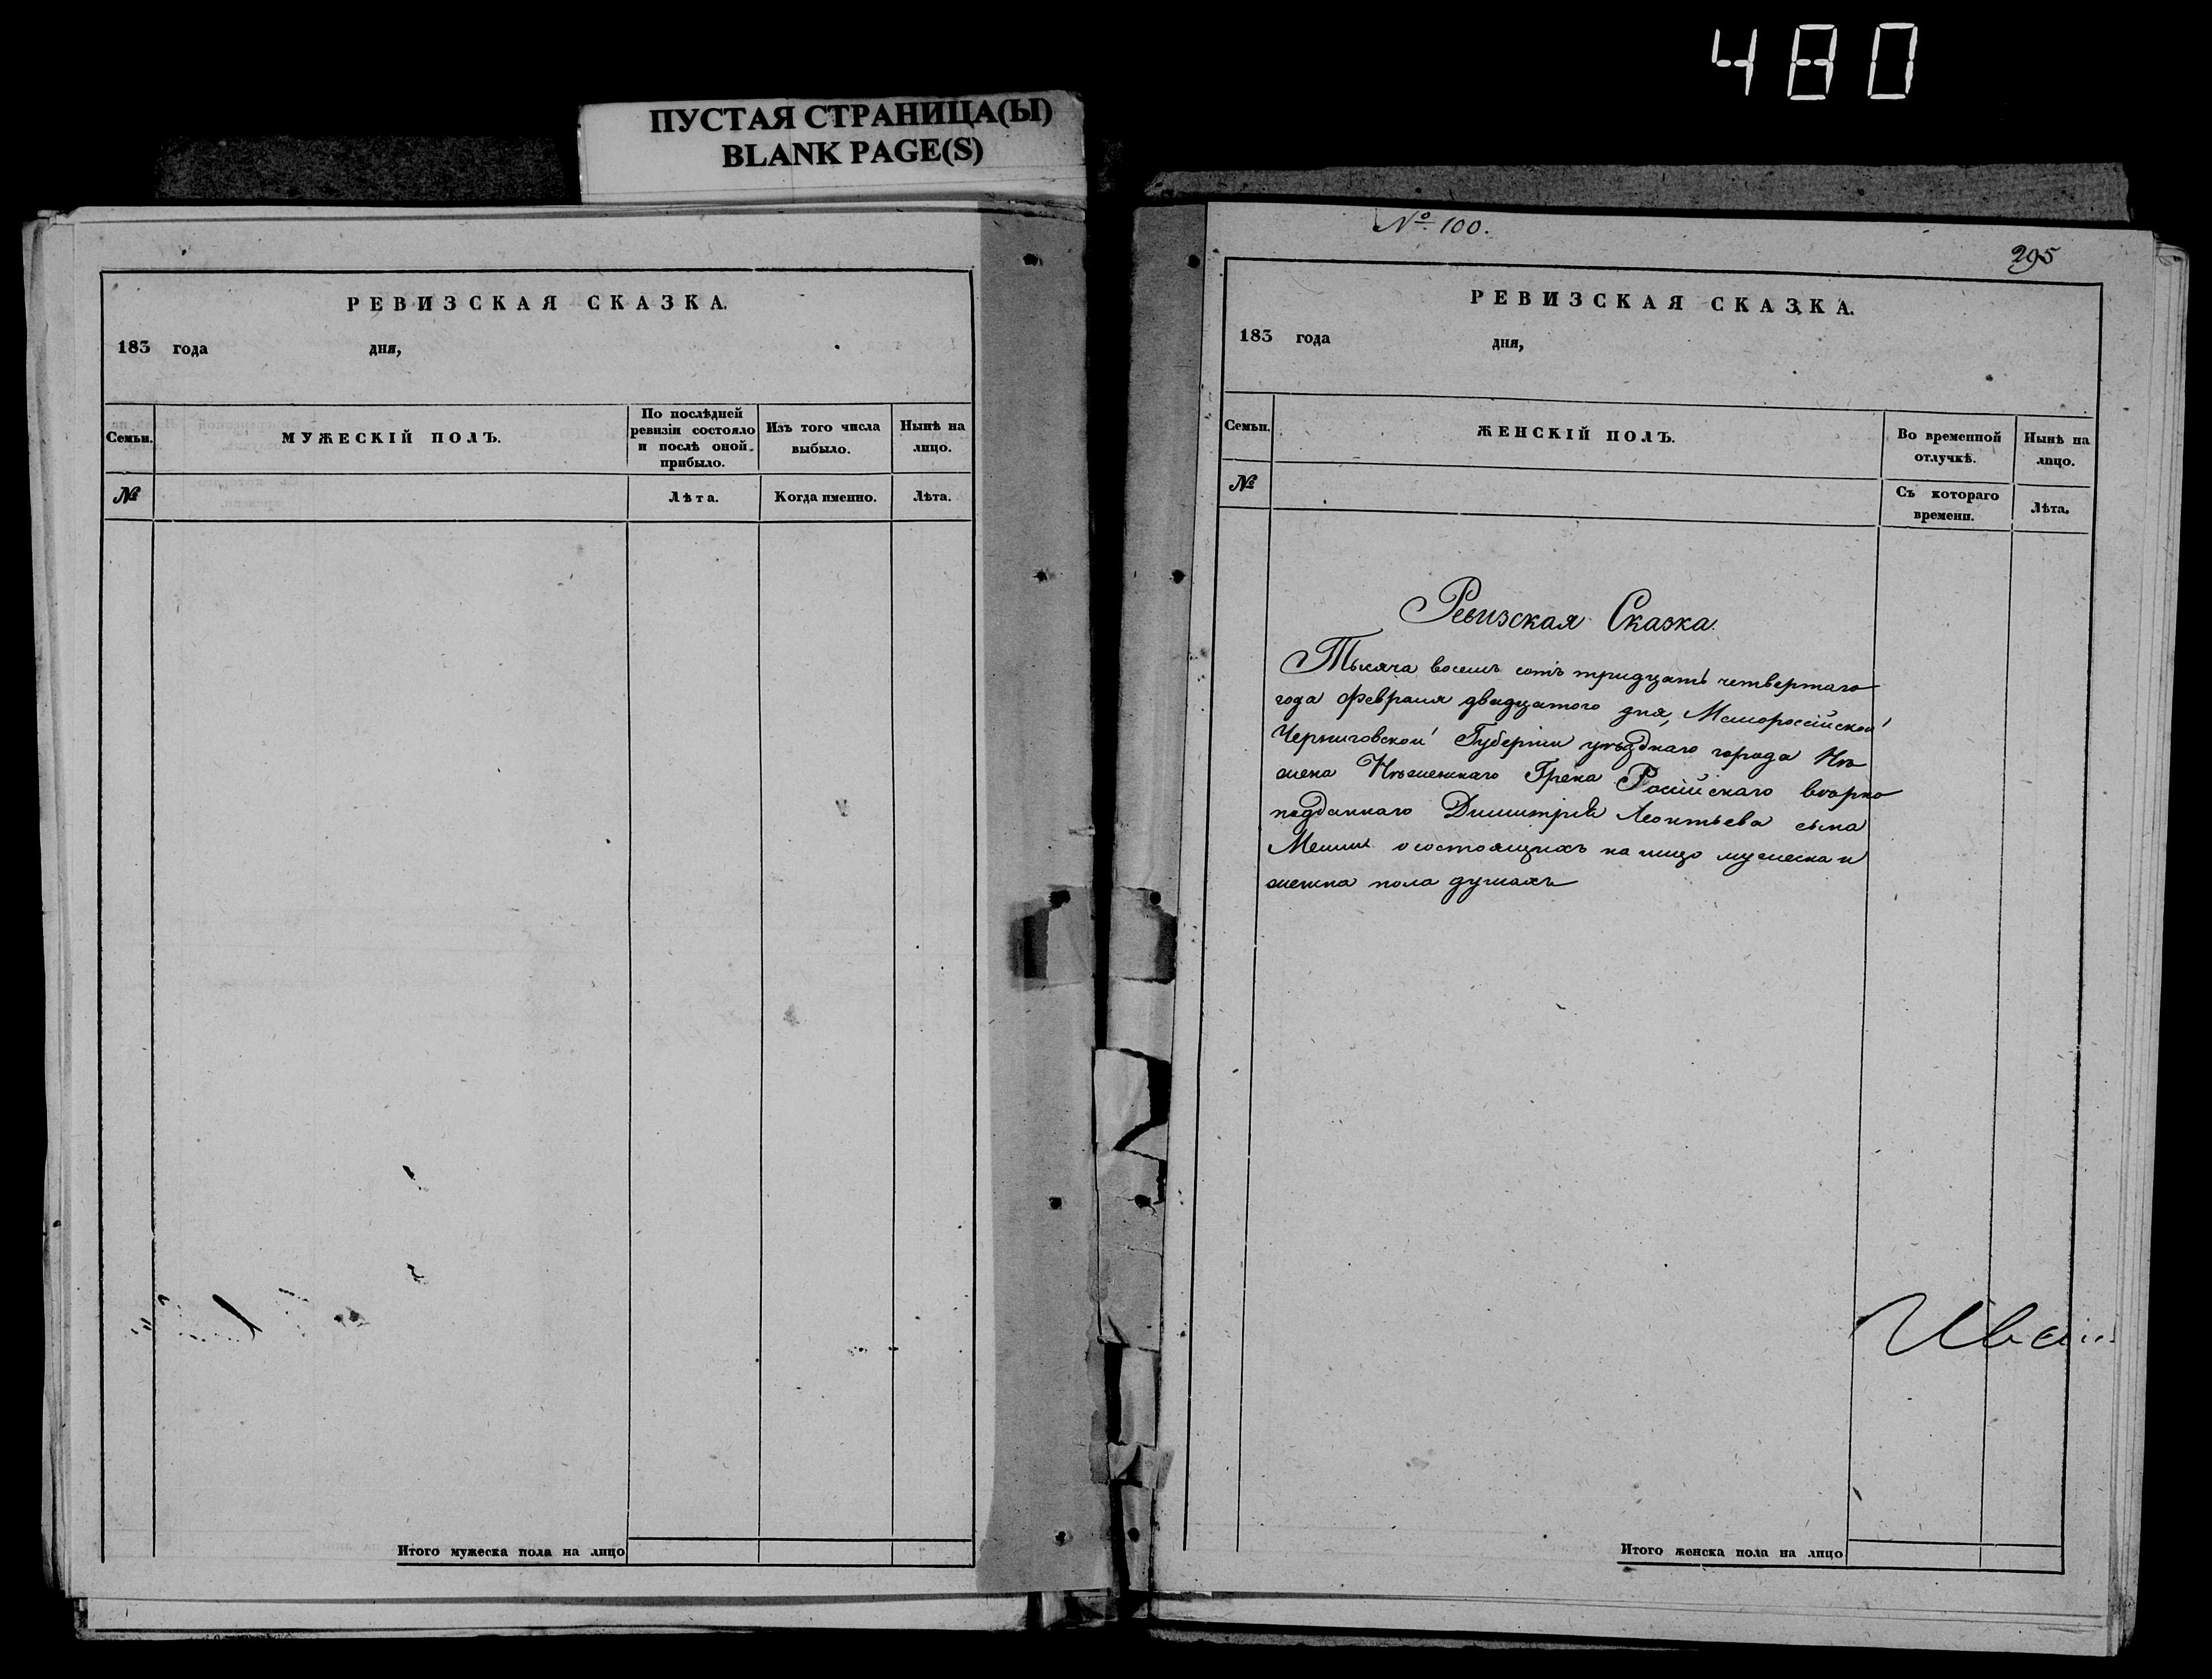 480
ПУСТАЯ СТРАНИЦА(Ы)
BLANK PAGE(S)
РЕВИЗСКАЯ СКАЗКА.
183 года дня,
Семьи.
МУЖЕСКІЙ ПОЛЪ.
По послѣдней ревизіи состояло и послѣ оной прибыло.
Изъ того числа выбыло.
Нынѣ на лицо.
№
Лѣта.
Когда именно.
Лѣта.
Итого мужеска пола на лицо
№ 100.
295
РЕВИЗСКАЯ СКАЗКА.
183 года дня,
Семьи.
ЖЕНСКІЙ ПОЛЪ.
Во временной отлучкѣ.
Нынѣ на лицо.
№
Съ котораго времени.
Лѣта.
Ревизская Сказка.
Тысяча восемь сотъ тридцать четвертаго
года Февраля двадцатого дня, Малороссійской
Черниговской Губерніи уѣзднаго города Нѣ
жена Нѣженскаго Грека Російскаго вѣрно
подданнаго Димитрія Леонтьева сына
о состоящихъ на лицо мужеска и
женска пола душахъ
Итого женска пола на лицо